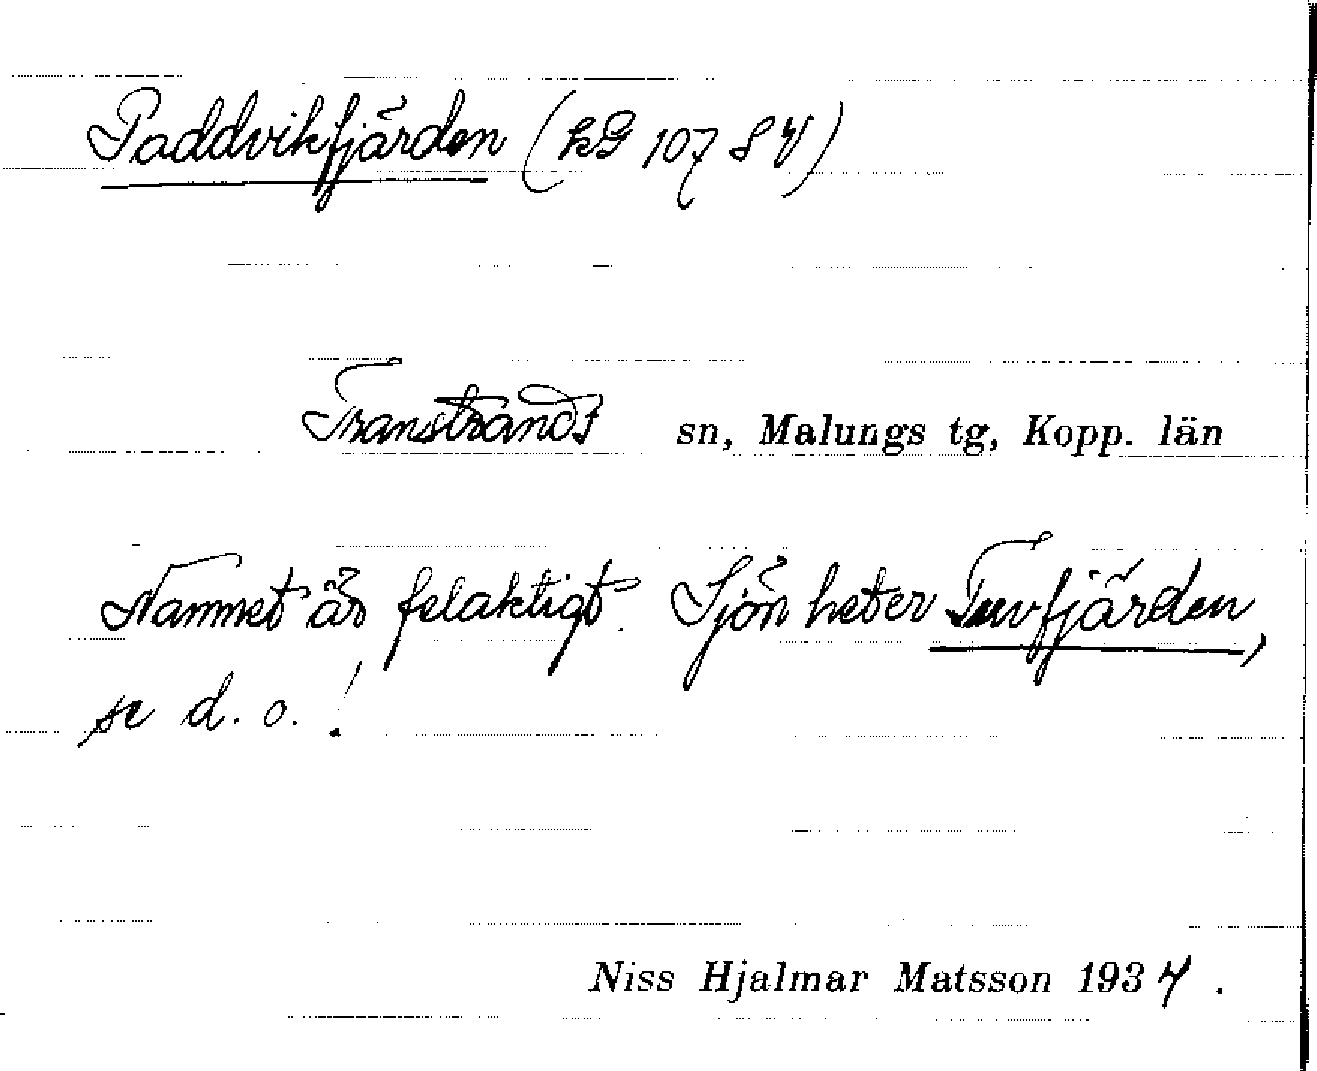 Paddvikfjärden (kG 107 SV)
Transtrands sn, Malungs tg, Kopp. län
Namnet är felaktigt. Sjön heter Tuvfjärden,
se d. o. !
Niss Hjalmar Matsson 1937.